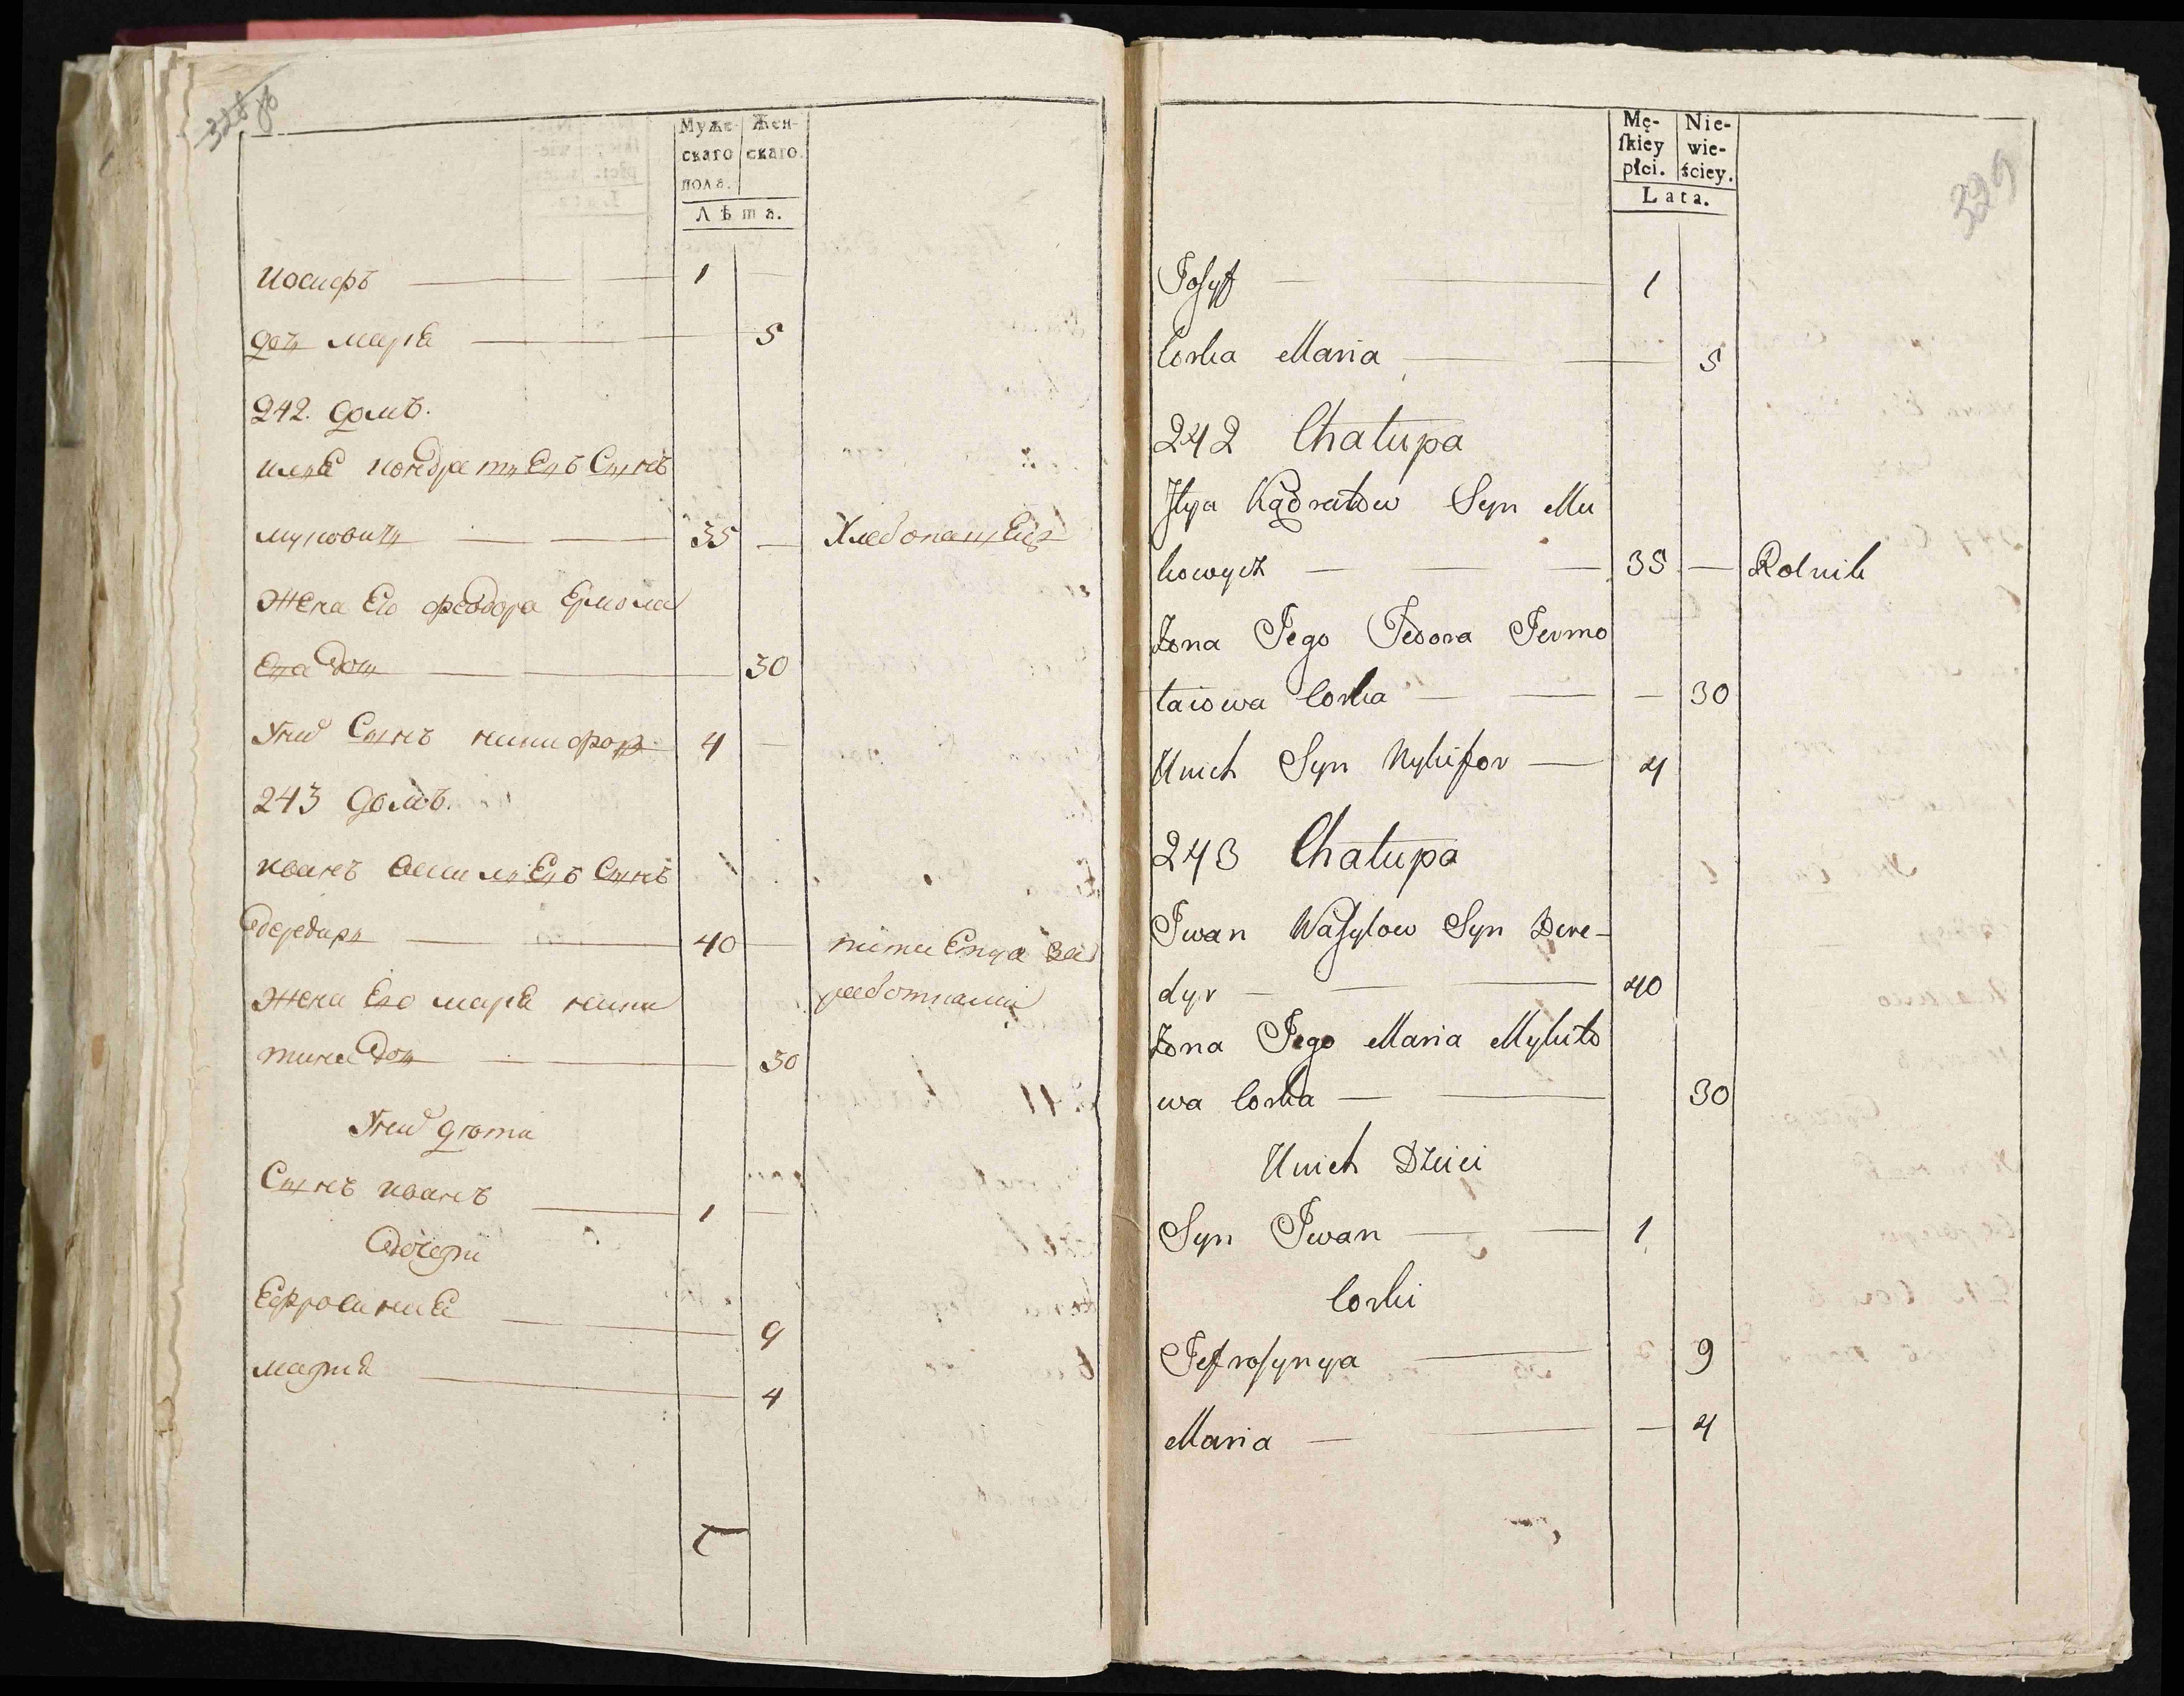 328 об
Муже-
скаго
пола.
Жен-
скаго.
Лѣта.
Иосифъ 1
дочъ Мария 5
242. домъ.
Илия Кондратиевъ Сынъ
Муковичъ 35 Хлебопашецъ
Жена Его Феодора Ермола
ева Дочъ 30
Унихъ Сынъ Никифоръ 4
243 домъ.
Иванъ Василиевъ Сынъ
Дередиръ 40 питается за
работками
Жена Его Мария Мики
тина Дочъ 30
Унихъ дѣти
Сынъ Иванъ 1
Дочери
Ефросиния 9
Мария 4
329
Mę-
skiey
płci.
Nie-
wie-
ściey.
Lata.
Josyf 1
Corka Maria 5
242 Chałupa
Jlya Kądratow Syn Mu
kowycz 35 Rolnik
Żona Jego Fedora Jermo
łaiowa Corka 30
Unich Syn Nykifor 4
243 Chałupa
Jwan Wasylow Syn Dere-
dyr 40
Żona Jego Maria Mykito
wa Corka 30
Unich Dzieci
Syn Jwan 1
Corki
Jefrosynya 9
Maria 4